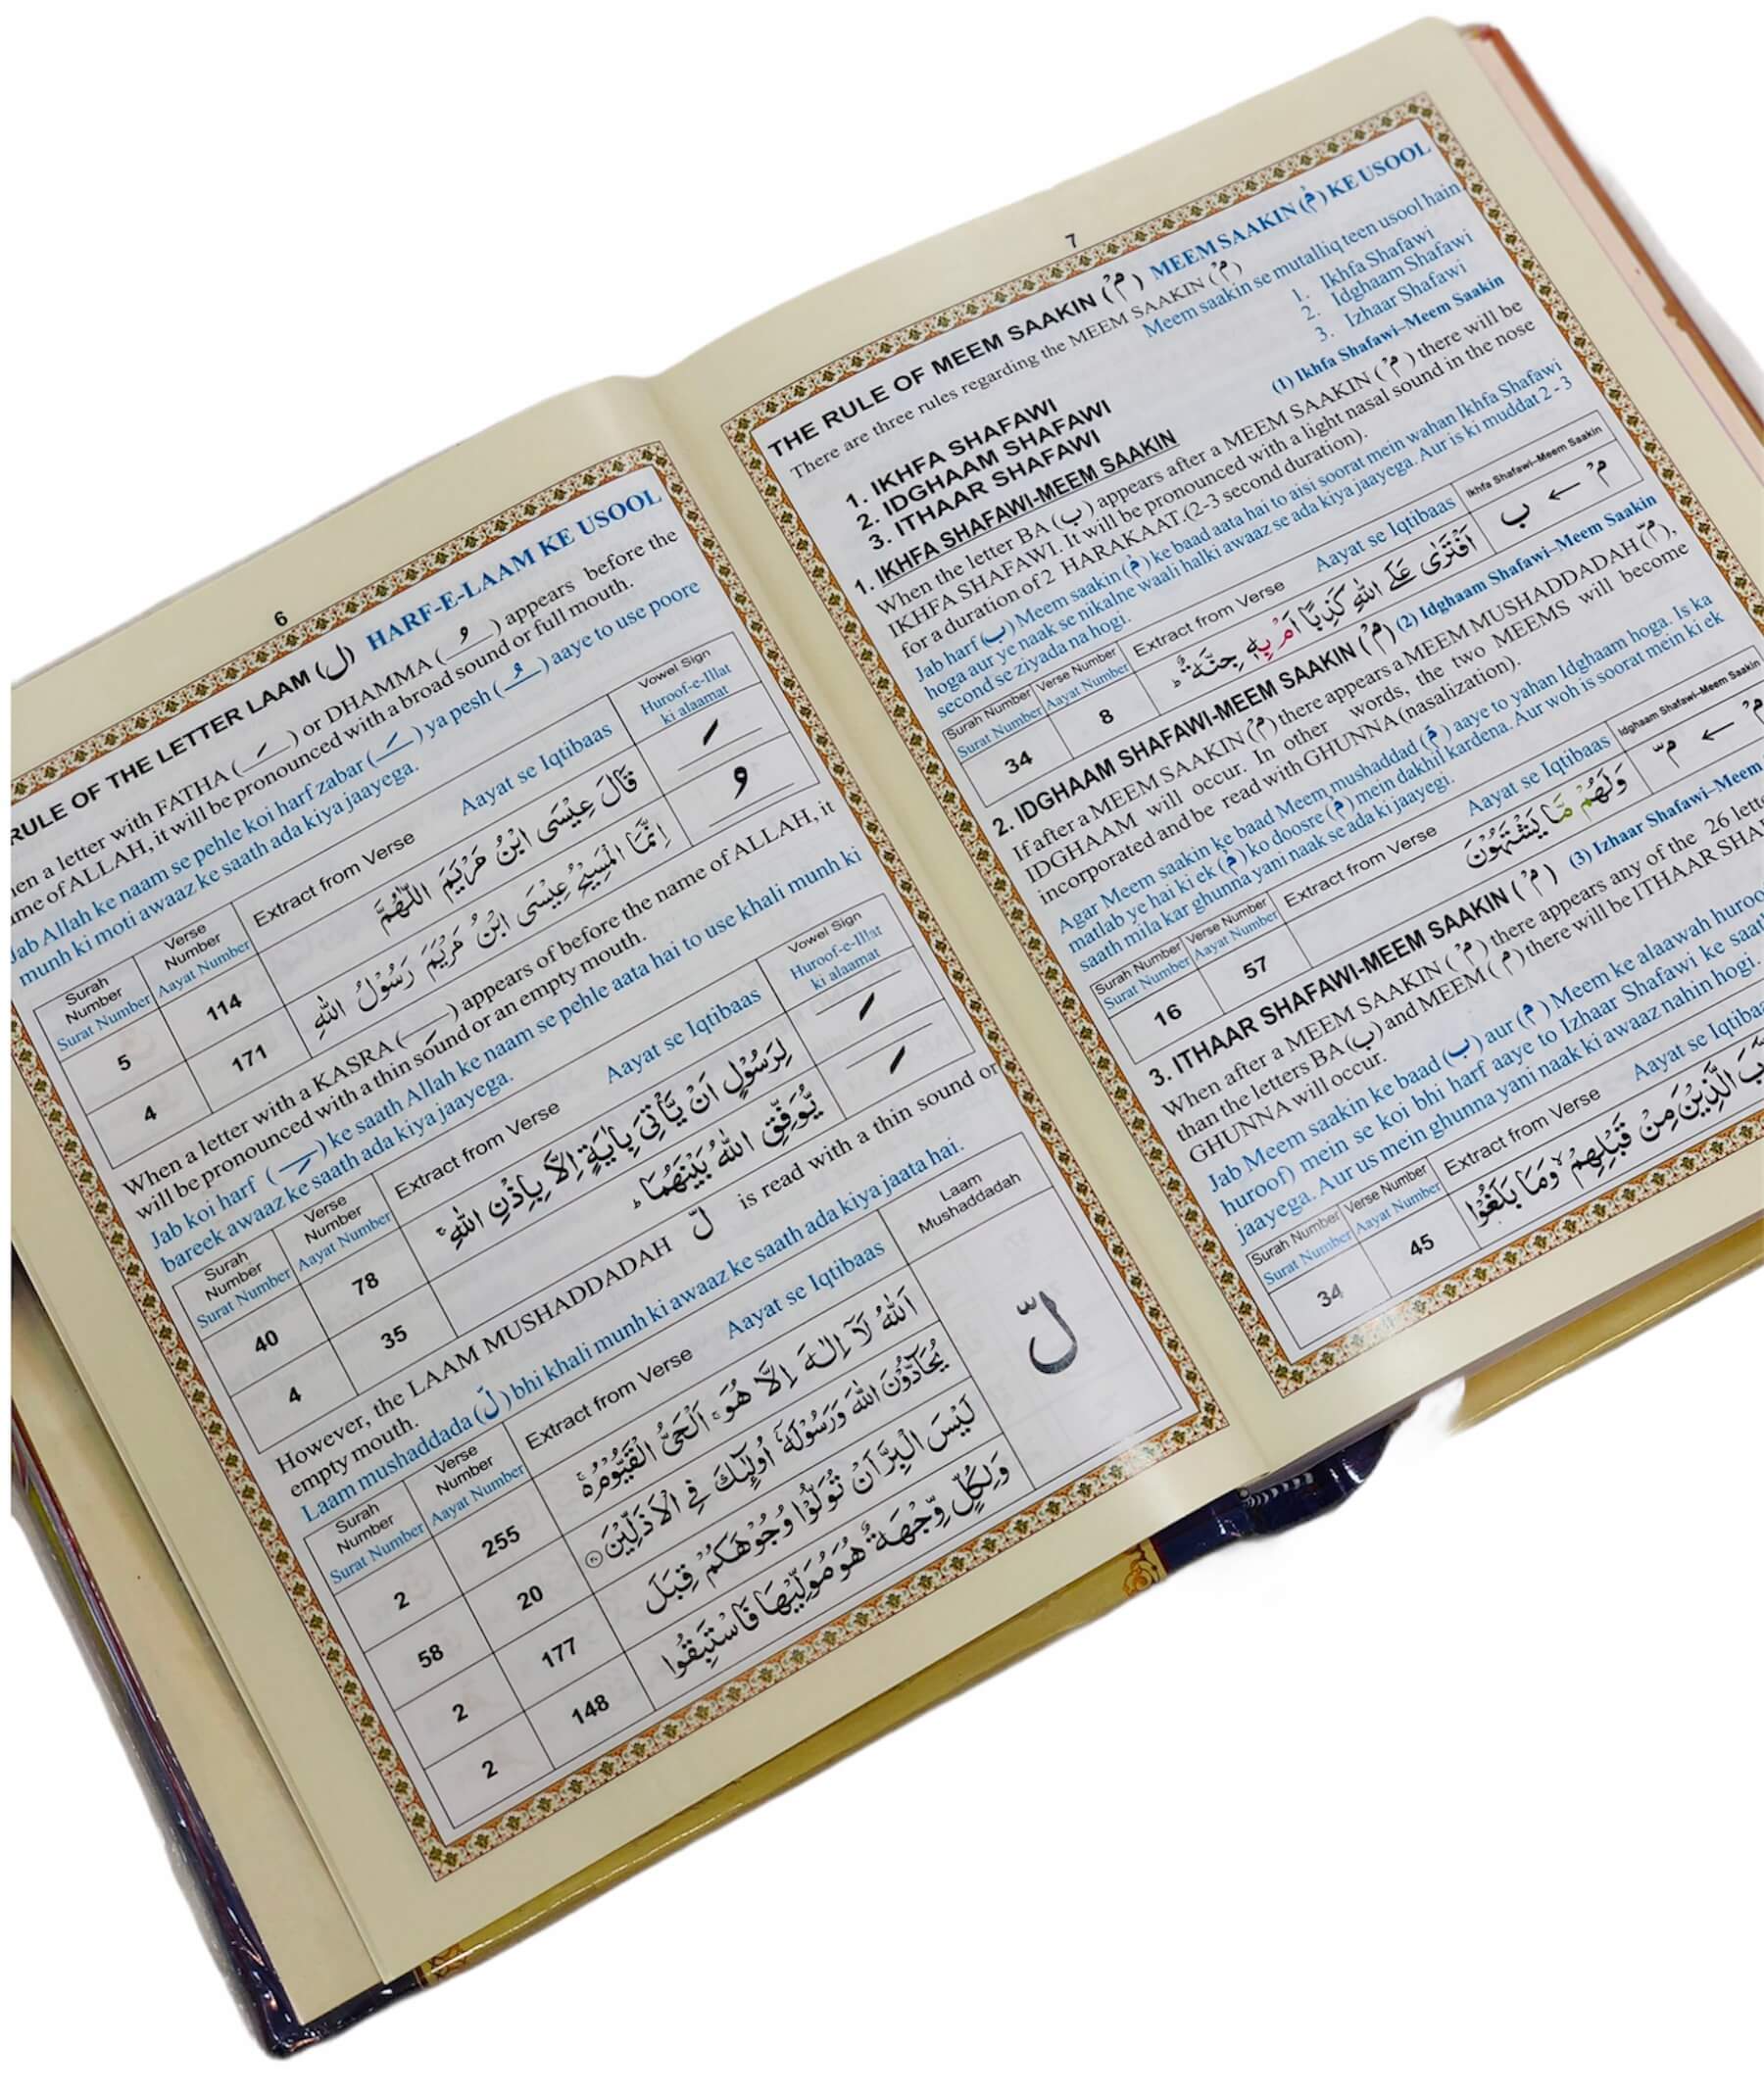 6
RULE OF THE LETTER LAAM (ل) HARF-E-LAAM KE USOOL
a letter with FATHA ( َ ) or DHAMMA ( ُ ) appears before the
of ALLAH, it will be pronounced with a broad sound or full mouth.
Jab Allah ke naam se pehle koi harf zabar ( َ ) ya pesh ( ُ ) aaye to use poore
munh ki moti awaaz ke saath ada kiya jaayega.
Surah Number Surat Number | Verse Number Aayat Number | Extract from Verse Aayat se Iqtibaas | Vowel Sign Huroof-e-Illat ki alaamat
5 | 114 | قَالَ عِيْسَى ابْنُ مَرْيَمَ اللّٰهُمَّ | َ
4 | 171 | اِنَّمَا الْمَسِيْحُ عِيْسَى ابْنُ مَرْيَمَ رَسُوْلُ اللّٰهِ | ُ
When a letter with a KASRA ( ِ ) appears of before the name of ALLAH, it
will be pronounced with a thin sound or an empty mouth.
Jab koi harf ( ِ ) ke saath Allah ke naam se pehle aata hai to use khali munh ki
bareek awaaz ke saath ada kiya jaayega.
Surah Number Surat Number | Verse Number Aayat Number | Extract from Verse Aayat se Iqtibaas | Vowel Sign Huroof-e-Illat ki alaamat
40 | 78 | لِرَسُوْلٍ اَنْ يَّاْتِيَ بِاٰيَةٍ اِلَّا بِاِذْنِ اللّٰهِ ۚ | ِ
4 | 35 | يُّوَفِّقِ اللّٰهُ بَيْنَهُمَا ؕ | ِ
However, the LAAM MUSHADDADAH لّ is read with a thin sound or
empty mouth.
Laam mushaddada (لّ) bhi khali munh ki awaaz ke saath ada kiya jaata hai.
Surah Number Surat Number | Verse Number Aayat Number | Extract from Verse Aayat se Iqtibaas | Laam Mushaddadah
2 | 255 | اَللّٰهُ لَاۤ اِلٰهَ اِلَّا هُوَ ۚ اَلْحَىُّ الْقَيُّوْمُ ۚ | لّ
58 | 20 | يُحَآدُّوْنَ اللّٰهَ وَرَسُوْلَهٗۤ اُولٰٓئِكَ فِى الْاَذَلِّيْنَ ۝۲۰
2 | 177 | لَيْسَ الْبِرَّ اَنْ تُوَلُّوْا وُجُوْهَكُمْ قِبَلَ
2 | 148 | وَلِكُلٍّ وِّجْهَةٌ هُوَ مُوَلِّيْهَا فَاسْتَبِقُوا
7
THE RULE OF MEEM SAAKIN (مْ) MEEM SAAKIN (مْ) KE USOOL
There are three rules regarding the MEEM SAAKIN (مْ)
Meem saakin se mutalliq teen usool hain
1. IKHFA SHAFAWI 1. Ikhfa Shafawi
2. IDGHAAM SHAFAWI 2. Idghaam Shafawi
3. ITHAAR SHAFAWI 3. Izhaar Shafawi
1. IKHFA SHAFAWI-MEEM SAAKIN (1) Ikhfa Shafawi–Meem Saakin
When the letter BA (ب) appears after a MEEM SAAKIN (مْ) there will be
IKHFA SHAFAWI. It will be pronounced with a light nasal sound in the nose
for a duration of 2 HARAKAAT.(2-3 second duration).
Jab harf (ب) Meem saakin (مْ) ke baad aata hai to aisi soorat mein wahan Ikhfa Shafawi
hoga aur ye naak se nikalne waali halki awaaz se ada kiya jaayega. Aur is ki muddat 2 - 3
second se ziyada na hogi.
Surah Number Surat Number | Verse Number Aayat Number | Extract from Verse Aayat se Iqtibaas | Ikhfa Shafawi–Meem Saakin
34 | 8 | اَفْتَرٰى عَلَى اللّٰهِ كَذِبًا اَمْ بِهٖ جِنَّةٌ ؕ | مْ ← ب
2. IDGHAAM SHAFAWI-MEEM SAAKIN (مْ) (2) Idghaam Shafawi–Meem Saakin
If after a MEEM SAAKIN (مْ) there appears a MEEM MUSHADDADAH (مّ),
IDGHAAM will occur. In other words, the two MEEMS will become
incorporated and be read with GHUNNA (nasalization).
Agar Meem saakin ke baad Meem mushaddad (مّ) aaye to yahan Idghaam hoga. Is ka
matlab ye hai ki ek (مْ) ko doosre (مْ) mein dakhil kardena. Aur woh is soorat mein ki ek
saath mila kar ghunna yani naak se ada ki jaayegi.
Surah Number Surat Number | Verse Number Aayat Number | Extract from Verse Aayat se Iqtibaas | Idghaam Shafawi–Meem Saakin
16 | 57 | وَلَهُمْ مَّا يَشْتَهُوْنَ | مْ ← مّ
3. ITHAAR SHAFAWI-MEEM SAAKIN (مْ) (3) Izhaar Shafawi–Meem
When after a MEEM SAAKIN (مْ) there appears any of the 26
than the letters BA (ب) and MEEM (م) there will be ITHAAR
GHUNNA will occur.
Jab Meem saakin ke baad (ب) aur (م) Meem ke alaawah
huroof) mein se koi bhi harf aaye to Izhaar Shafawi ke
jaayega. Aur us mein ghunna yani naak ki awaaz nahin hogi.
Surah Number Surat Number | Verse Number Aayat Number | Extract from Verse Aayat se
34 | 45 | الَّذِيْنَ مِنْ قَبْلِهِمْ ۙ وَمَا بَلَغُوْا